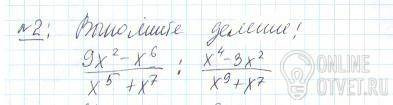 №2: Выполните деление!
(9x² - x⁶)/(x⁵ + x⁷) : (x⁴ - 9x²)/(x⁹ + x⁷)
ONLINE
OTVET.RU